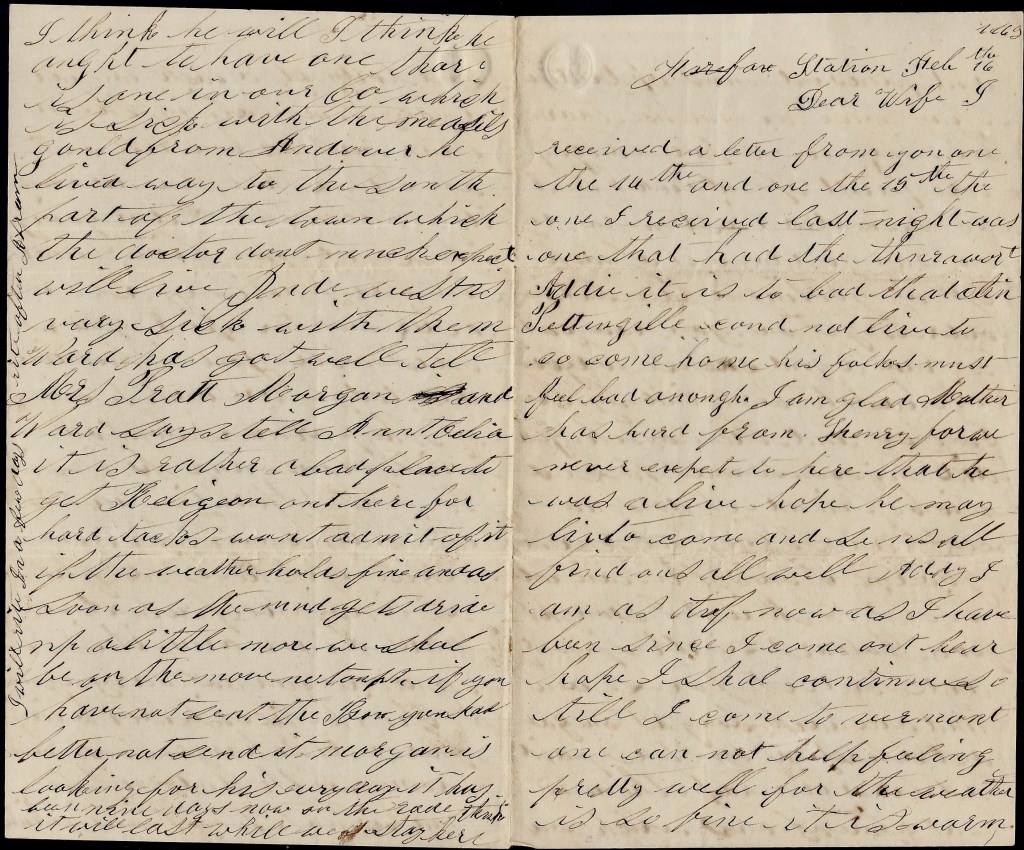 1863
Fairfax Station Feb 16th
Dear Wife I
received a letter from you one
the 14th and one the 15th the
one I received last night was
one that had the thurawort
Addie it is to bad that
Pettingille coud not live to
go come home his folks must
feel bad anough. I am glad Mother
has hurd from Henry for we
never exepet to here that he
was alive hope he may
liv to come and se us all
find ous all well Addy I
am as now as I have
ben since I come out hear
hope I shal continue so
till I come to vermont
one can not help feeling
pretty well for the weather
is so fine it is warm
I think he will I think he
aught to have one thar
is one in our Co which
is sick with the measels
gould from Andover he
lived way to the south
part of the town which
the doctor dont much expect
will live West is
vary sick with them
Ward has got well tell
Mrs Pratt Morgan and
Ward says tell Ann
it is rather a bad place to
get Religeon out here for
hard tacks wont admit of it
if the weather holds fine and as
soon as the mud gets dride
up a little more we shal
be on the move no if you
have not sent the Box you had
better not send it morgan is
looking for his every day it has
ben nine days now on the rode think
it will last while we stay here
I will write in a few days write often